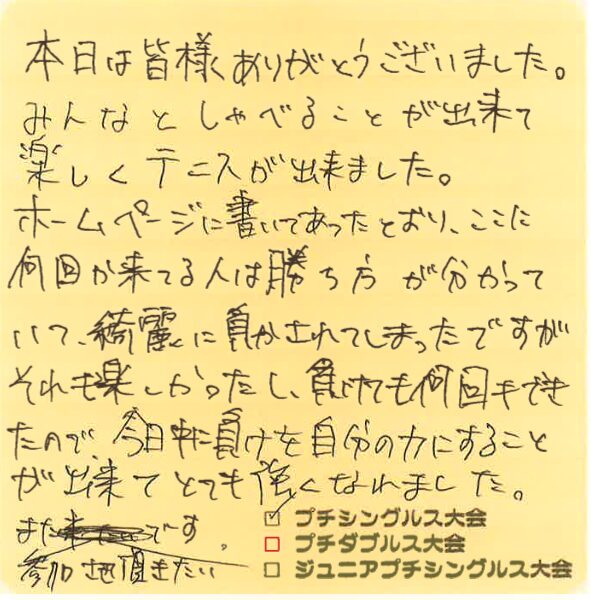 本日は皆様ありがとうございました。
みんなとしゃべることが出来て
楽しくテニスが出来ました。
ホームページに書いてあったとおり、ここに
何回か来てる人は勝ち方が分かって
いて、綺麗に負かされてしまったですが
それも楽しかったし、負けても何回もでき
たので、今日中に負けを自分の力にすること
が出来てとても強くなれました。
また来たいです。
参加させて頂きたい
☑ プチシングルス大会
□ プチダブルス大会
□ ジュニアプチシングルス大会